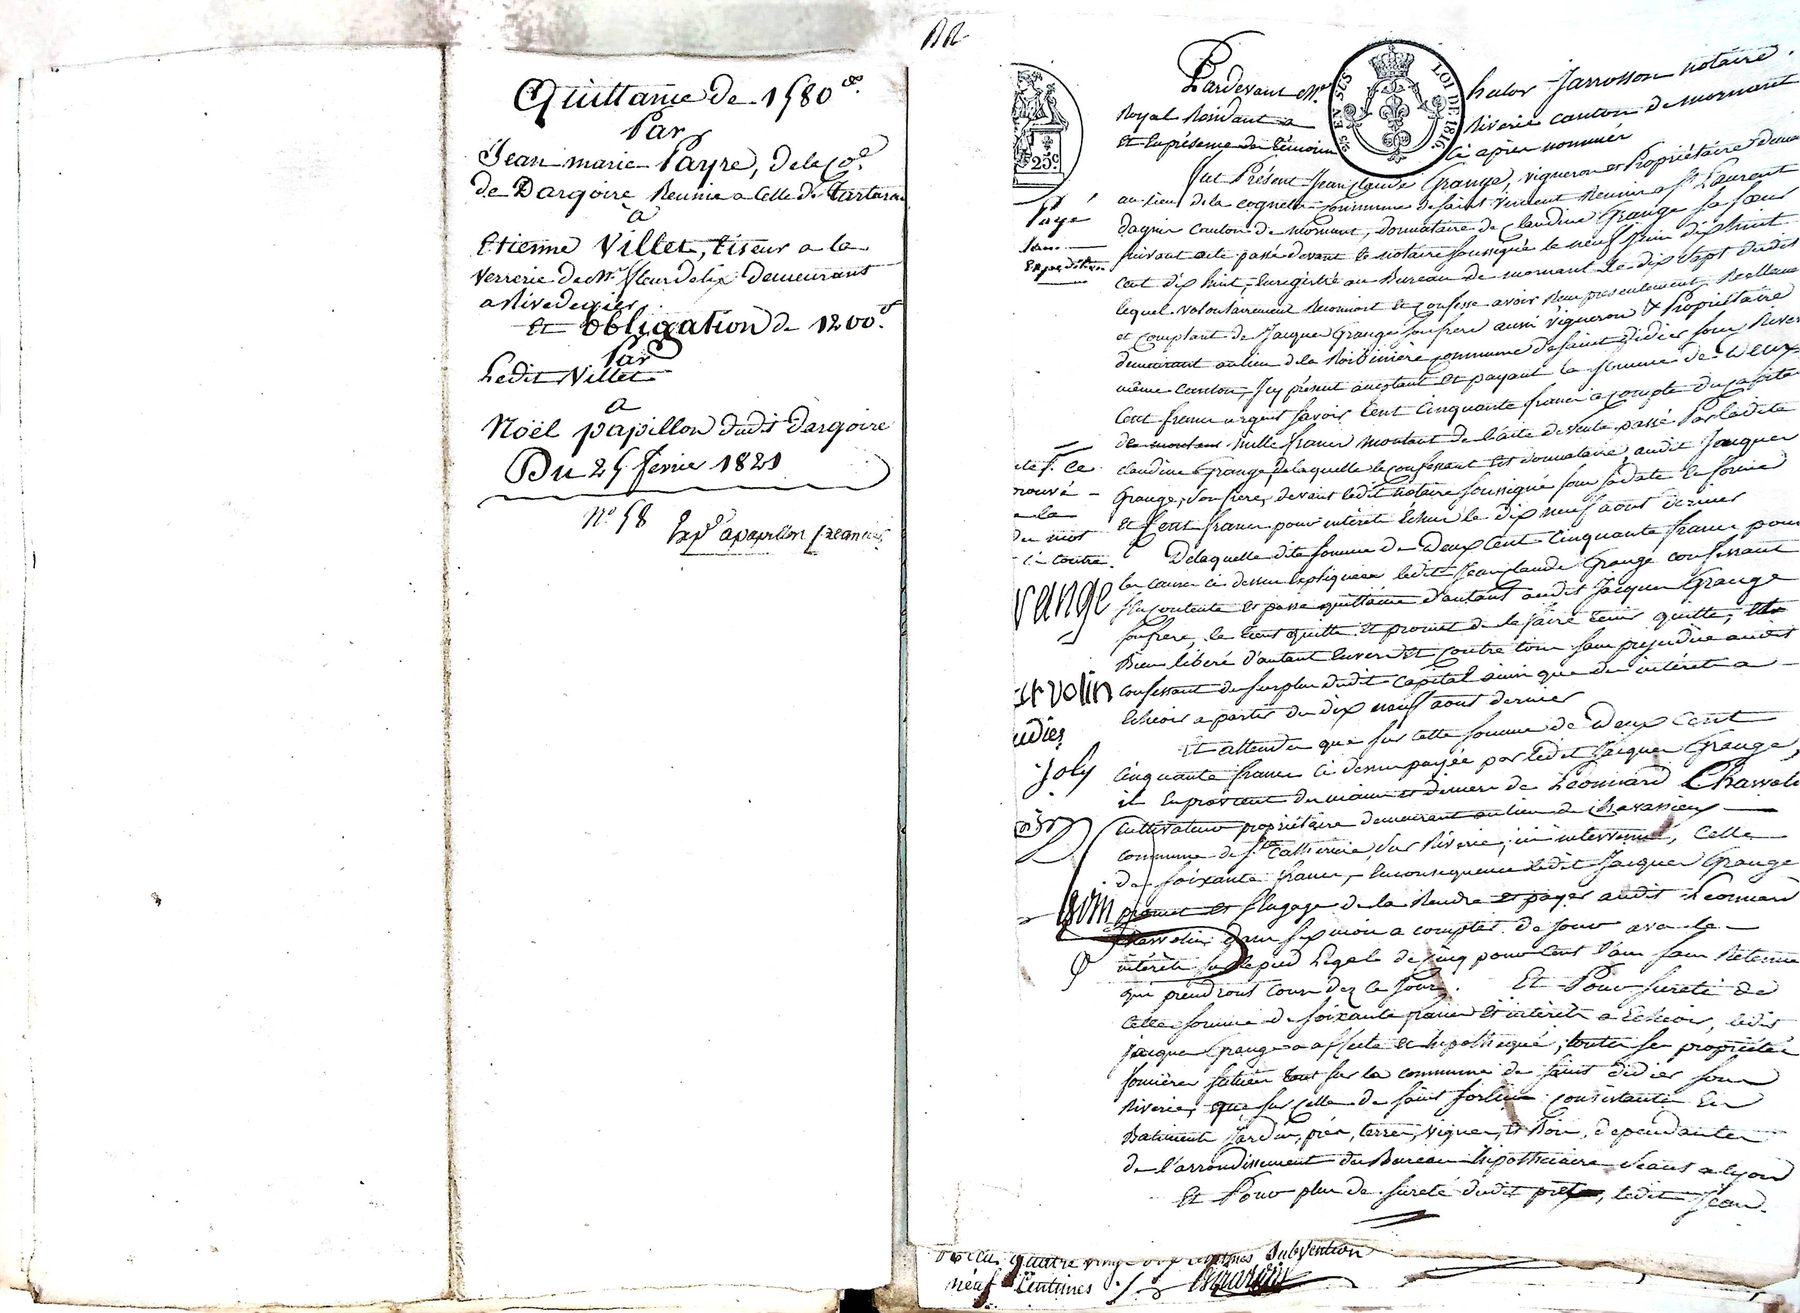 Quittance de 1580 fr.
Par
Jean marie Payre, de la Coe.
de Dargoire Reunie a Celle de Tartaras
à
Etienne Villet, tiseur a la
Verrerie de Mr. fleurdelix demeurant
a Rivedegier
et obligation de 1200 f.
Par
Ledit Villet
a
Noël papillon dudit dargoire
Du 25 fevrier 1821
N° 58
Expé a papillon
Pardevant Me. Jarrosson notaire
Royal Residant a Riverie canton de mornant
Et En présence des témoins Ci après nommés
EN SUS
LOI DE 1816.
25c.
Payé
Expedition
fut Présent Jean Claude Grange, vigneron et Propriétaire demeurant
au lieu de la Commune de saint Vincent Reunie a St. Laurent
dagnin Canton de Mornant, donnataire de Claudine Grange sa sœur
suivant acte passé devant le notaire soussigné le neuf juin dix huit
cent dix huit, Enregistré au Bureau de mornant le dix sept dudit
lequel volontairement Reconnait et Confesse avoir Reçu presentement Reellement
et Comptant de Jacques Grange son frere aussi Vigneron & Propriétaire
demeurant au lieu de la Commune de saint didier sous Riverie
même Canton, Icy present acceptant et payant la somme de Deux
Cent francs argent savoir Cent Cinquante francs a Compte du Capital
de mille francs montant de l'acte de vente passé Par ladite
Claudine Grange, de laquelle le Confessant est donnataire, audit Jacques
Grange, son frere, devant ledit Notaire soussigné sous sa date En forme
et Cent francs pour intérêts Echus le dix neuf aout dernier
De laquelle dite somme de Deux Cent Cinquante francs pour
les Causes ci dessus Expliquées ledit Jean Claude Grange confessant
se contente et passe quittance d'autant audit Jacques Grange
son frere, le tient quitte et promet de le faire tenir quitte, et
Bien libéré d'autant Envers et Contre tous sans prejudice audit
Confessant du surplus dudit Capital ainsi que des intérêts a
Echeoir a partir du dix neuf aout dernier
Et attendu que sur cette somme de Deux Cent
Cinquante francs Ci dessus payée par ledit Jacques Grange,
il En provient des mains et deniers de Leonnard
Cultivateur propriétaire demeurant au lieu de
Commune de Ste. Catherine, sur Riverie, ici intervenu, Celle
de soixante francs, En consequence ledit Jacques Grange
promet et s'Engage de la Rendre et payer audit Leonnard
dans six mois a compter de ce jour avec les
intérêts sur le pied Legale de cinq pour Cent l'an sans Retenue
qui prendront Cours dez Ce Jour. Et Pour sureté de
Cette somme de soixante francs et intérêts a Echeoir, ledit
Jacques Grange a affecté et hipothequé, toutes ses propriétés
foncières situées tant sur la commune de saint didier sous
Riverie, que sur Celle de saint sorlin consistantes En
Batiments Jardin, prés, terres, vignes, et Bois, dependantes
de l'arrondissement du Bureau hipothécaire seant a lyon
Et Pour plus de sureté dudit pret, ledit Jean
Joly
subvention
neuf Centimes